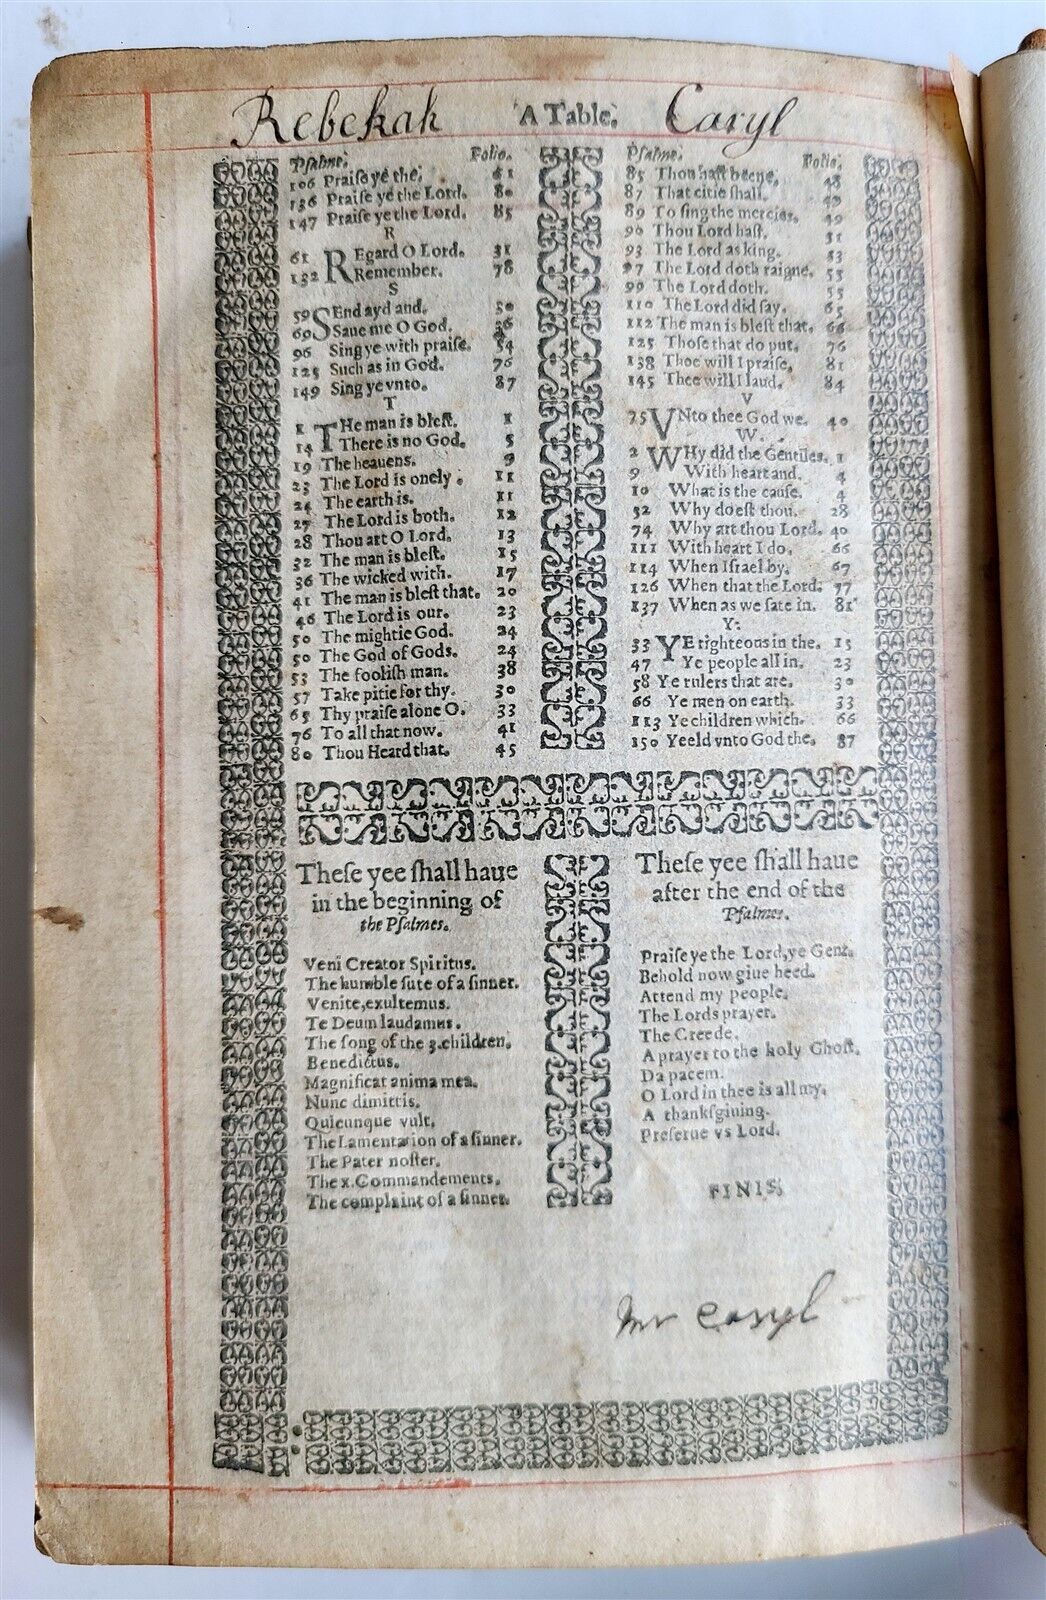 Rebekah A Table. Caryl
Psalme. Folio.
106 Praise ye the. 61
136 Praiſe ye the Lord. 80
147 Praiſe ye the Lord. 85
R
61 REgard O Lord. 31
132 Remember. 78
S
59 SEnd ayd and. 50
69 Saue me O God. 36
96 Sing ye with praise. 54
125 Such as in God. 76
149 Sing ye vnto. 87
T
1 THe man is bleſt. 1
14 There is no God. 5
19 The heauens. 9
23 The Lord is onely. 11
24 The earth is. 11
27 The Lord is both. 12
28 Thou art O Lord. 13
32 The man is bleſt. 15
36 The wicked with. 17
41 The man is bleſt that. 20
46 The Lord is our. 23
50 The mightie God. 24
50 The God of Gods. 24
53 The fooliſh man. 38
57 Take pitie for thy. 30
65 Thy praiſe alone O. 33
76 To all that now. 41
80 Thou Heard that. 45
Psalme. Folio.
85 Thou haſt beene. 48
87 That citie ſhall. 49
89 To ſing the mercies. 49
90 Thou Lord haſt. 51
93 The Lord as king. 53
97 The Lord doth raigne. 55
99 The Lord doth. 55
110 The Lord did ſay. 65
112 The man is bleſt that. 66
125 Thoſe that do put. 76
138 Thee will I praiſe. 81
145 Thee will I laud. 84
V
75 VNto thee God we. 40
W.
2 WHy did the Gentiles. 1
9 With heart and. 4
10 What is the cauſe. 4
52 Why doeſt thou. 28
74 Why art thou Lord. 40
111 With heart I do. 66
114 When Iſrael by. 67
126 When that the Lord. 77
137 When as we ſate in. 81
Y:
33 YE righteons in the. 15
47 Ye people all in. 23
58 Ye rulers that are. 30
66 Ye men on earth. 33
113 Ye children which. 66
150 Yeeld vnto God the. 87
Theſe yee ſhall haue
in the beginning of
the Pſalmes.
Veni Creator Spiritus.
The humble ſute of a ſinner.
Venite, exultemus.
Te Deum laudamus.
The ſong of the 3. children.
Benedictus.
Magnificat anima mea.
Nunc dimittis.
Quicunque vult.
The Lamentation of a ſinner.
The Pater noſter.
The x. Commandements.
The complaint of a ſinner.
Theſe yee ſhall haue
after the end of the
Pſalmes.
Praiſe ye the Lord, ye Gent.
Behold now giue heed.
Attend my people.
The Lords prayer.
The Creede.
A prayer to the holy Ghoſt.
Da pacem.
O Lord in thee is all my.
A thankſgiuing.
Preſerue vs Lord.
FINIS.
Mr Caryl